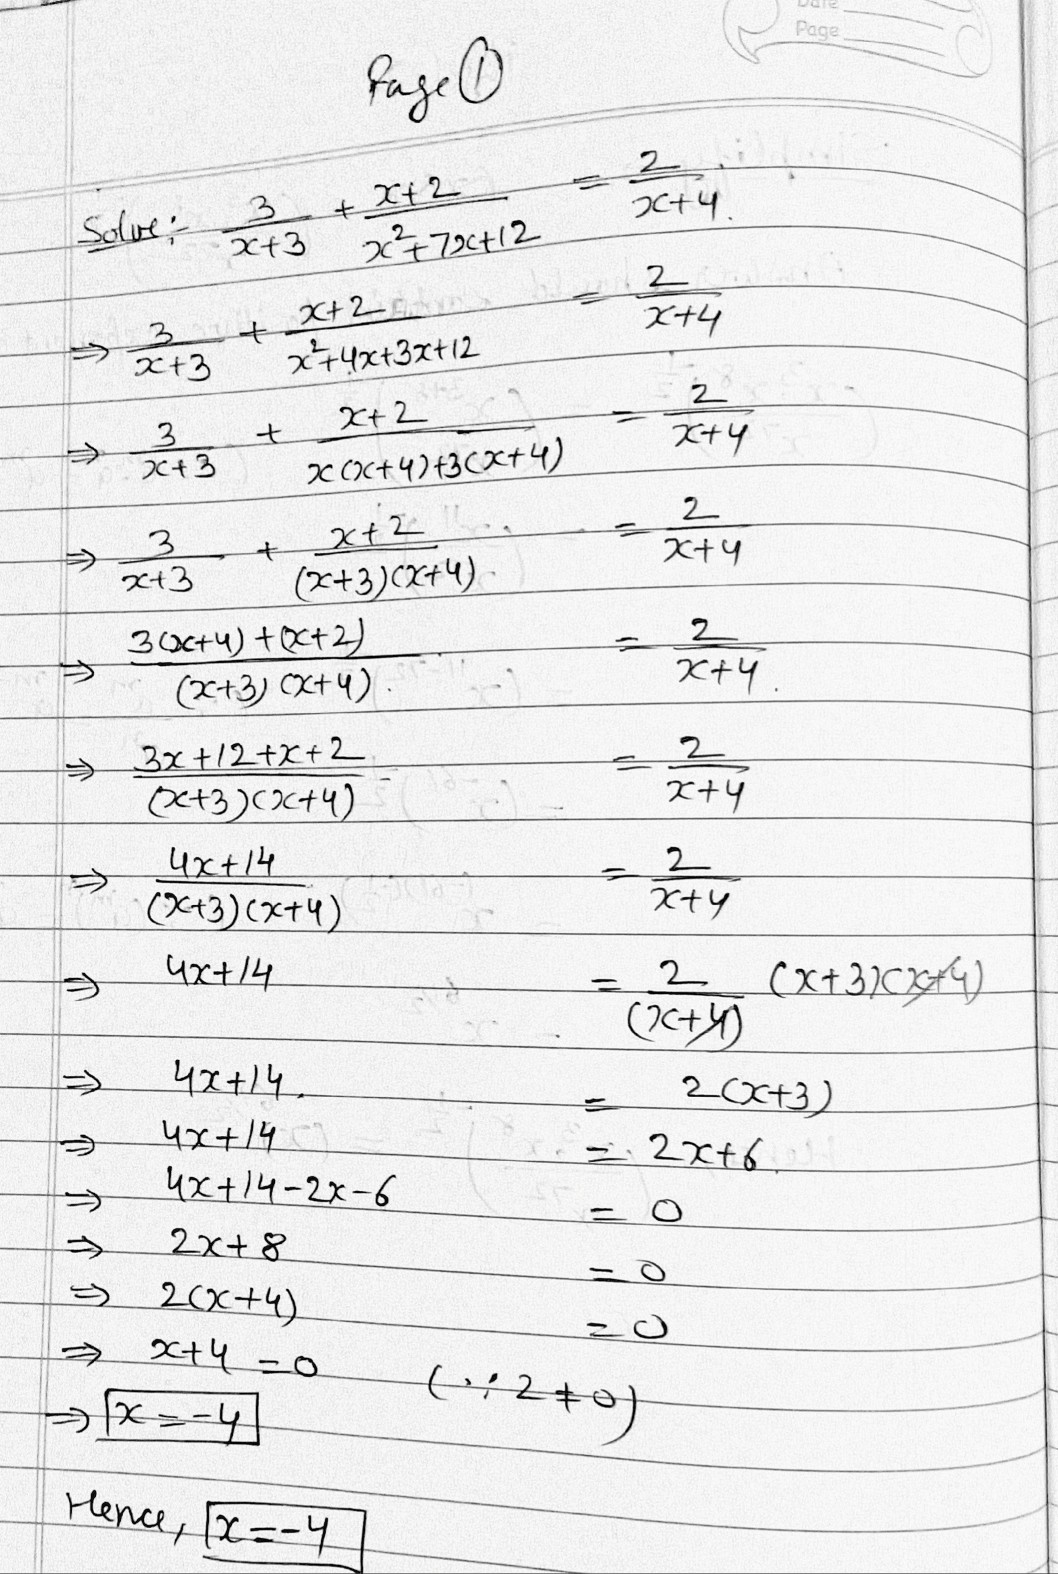 Date
Page
Page ①
Solve:- 3/(x+3) + (x+2)/(x²+7x+12) = 2/(x+4).
⇒ 3/(x+3) + (x+2)/(x²+4x+3x+12) = 2/(x+4)
⇒ 3/(x+3) + (x+2)/(x(x+4)+3(x+4)) = 2/(x+4)
⇒ 3/(x+3) + (x+2)/((x+3)(x+4)) = 2/(x+4)
⇒ (3(x+4)+(x+2))/((x+3)(x+4)) = 2/(x+4)
⇒ (3x+12+x+2)/((x+3)(x+4)) = 2/(x+4)
⇒ (4x+14)/((x+3)(x+4)) = 2/(x+4)
⇒ 4x+14 = 2/(x+4) (x+3)(x+4)
⇒ 4x+14 = 2(x+3)
⇒ 4x+14 = 2x+6
⇒ 4x+14-2x-6 = 0
⇒ 2x+8 = 0
⇒ 2(x+4) = 0
⇒ x+4 = 0 (∵ 2≠0)
⇒ x=-4
Hence, x=-4